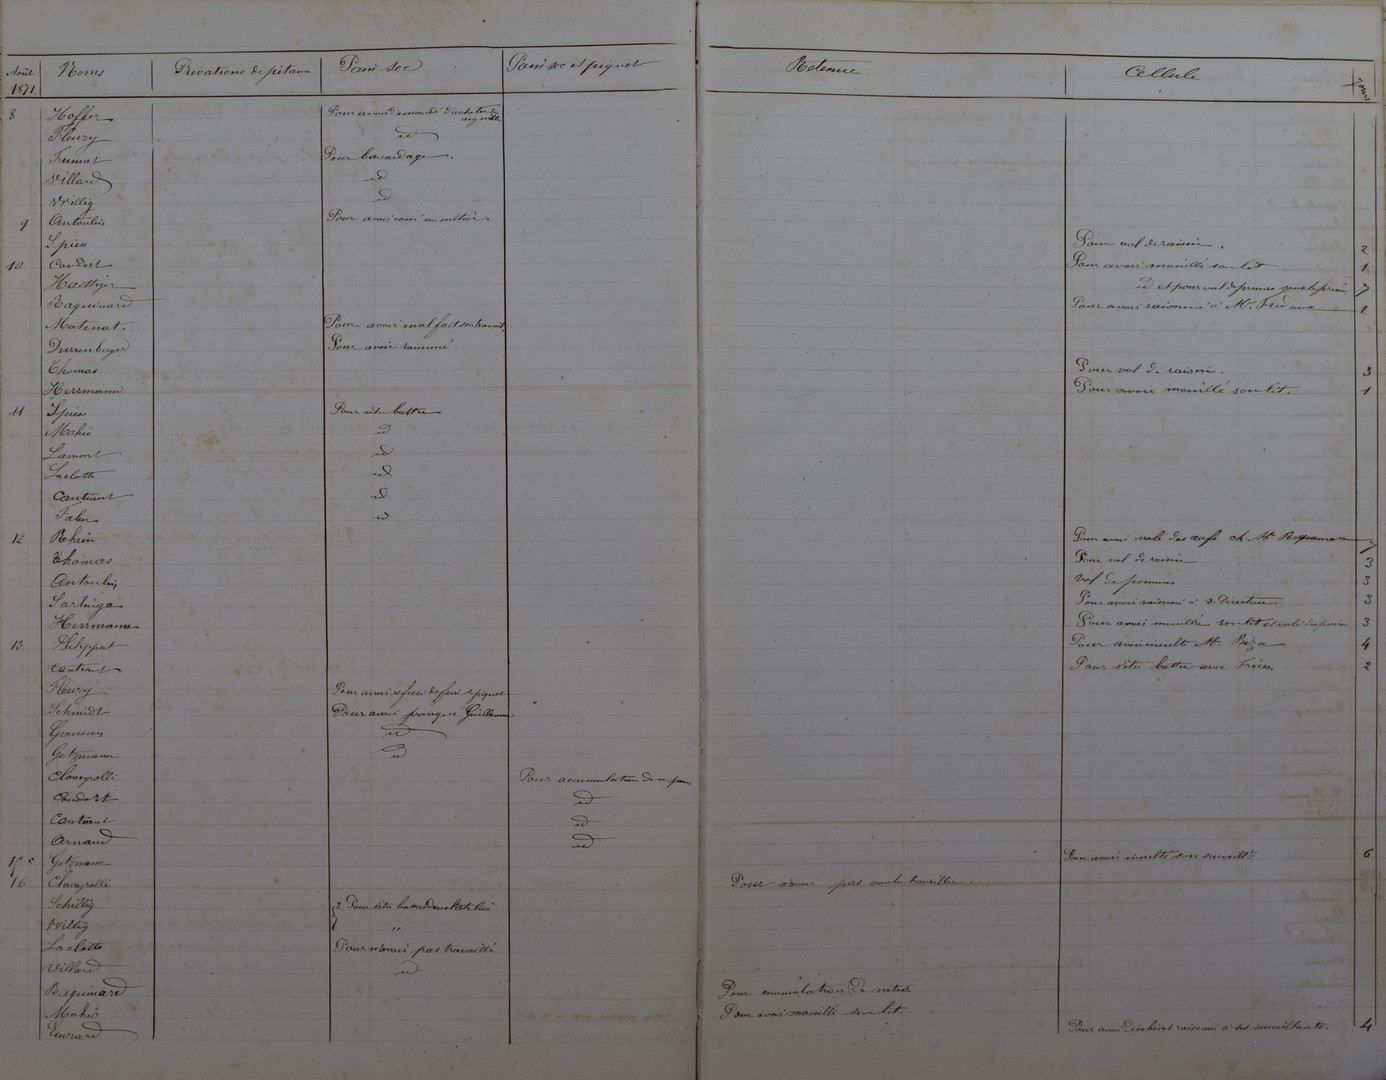 Août 1871 Noms Privations de pitance Pain sec Pain sec et piquet Retenue Cellule Jours
8 Hoffer Pour avoir demandé d'acheter des aiguilles
Fleury id
Fumat Pour bavardage.
Villard id
Willig id
9 Antoulin Pour avoir cassé un métier.
Spies Pour vol de raisin. 2
10 Coudert Pour avoir mouillé son lit 1
Haettiger id et pour vol de prunes 7
Baquinard Pour avoir raisonné à Mr 1
Matinat. Pour avoir mal fait son travail
Durrenberger Pour avoir raisonné
Thomas Pour vol de raisin. 3
Herrmann Pour avoir mouillé son lit. 1
11 Spies Pour s'être battu
Mahié id
Lamort id
Laclotte id
Cantuant id
Faber id
12 Rhein Pour avoir volé des œufs ch. Mr 7
Thomas Pour vol de raisin 3
Antoulin Vol de pommes 3
Sarluiga Pour avoir raisonné à Directeur 3
Herrmann Pour avoir mouillé son lit et volé 3
13 Philippat Pour avoir insulté Mr. Biza 4
Cantuant Pour s'être battu avec 2
Fleury Pour avoir refusé de faire le piquet
Schmidt Pour avoir provoqué Guillaume
Gaussen id
Getzmann id
Claveyrolli Pour accumulation de
Coudert id
Cantuant id
Arnaud id
15 Getzmann Pour avoir insulté son surveillt 6
16 Claveyrolli Pour n'avoir pas voulu travailler
Schillig 2 Pour s'être battu dans l'atelier
Willig "
Laclotte Pour n'avoir pas travaillé
Villard id
Baquinard Pour cumulation de notes
Mahié Pour avoir mouillé son lit.
Euvrard Pour avoir désobéi et raisonné à ses surveillants. 4